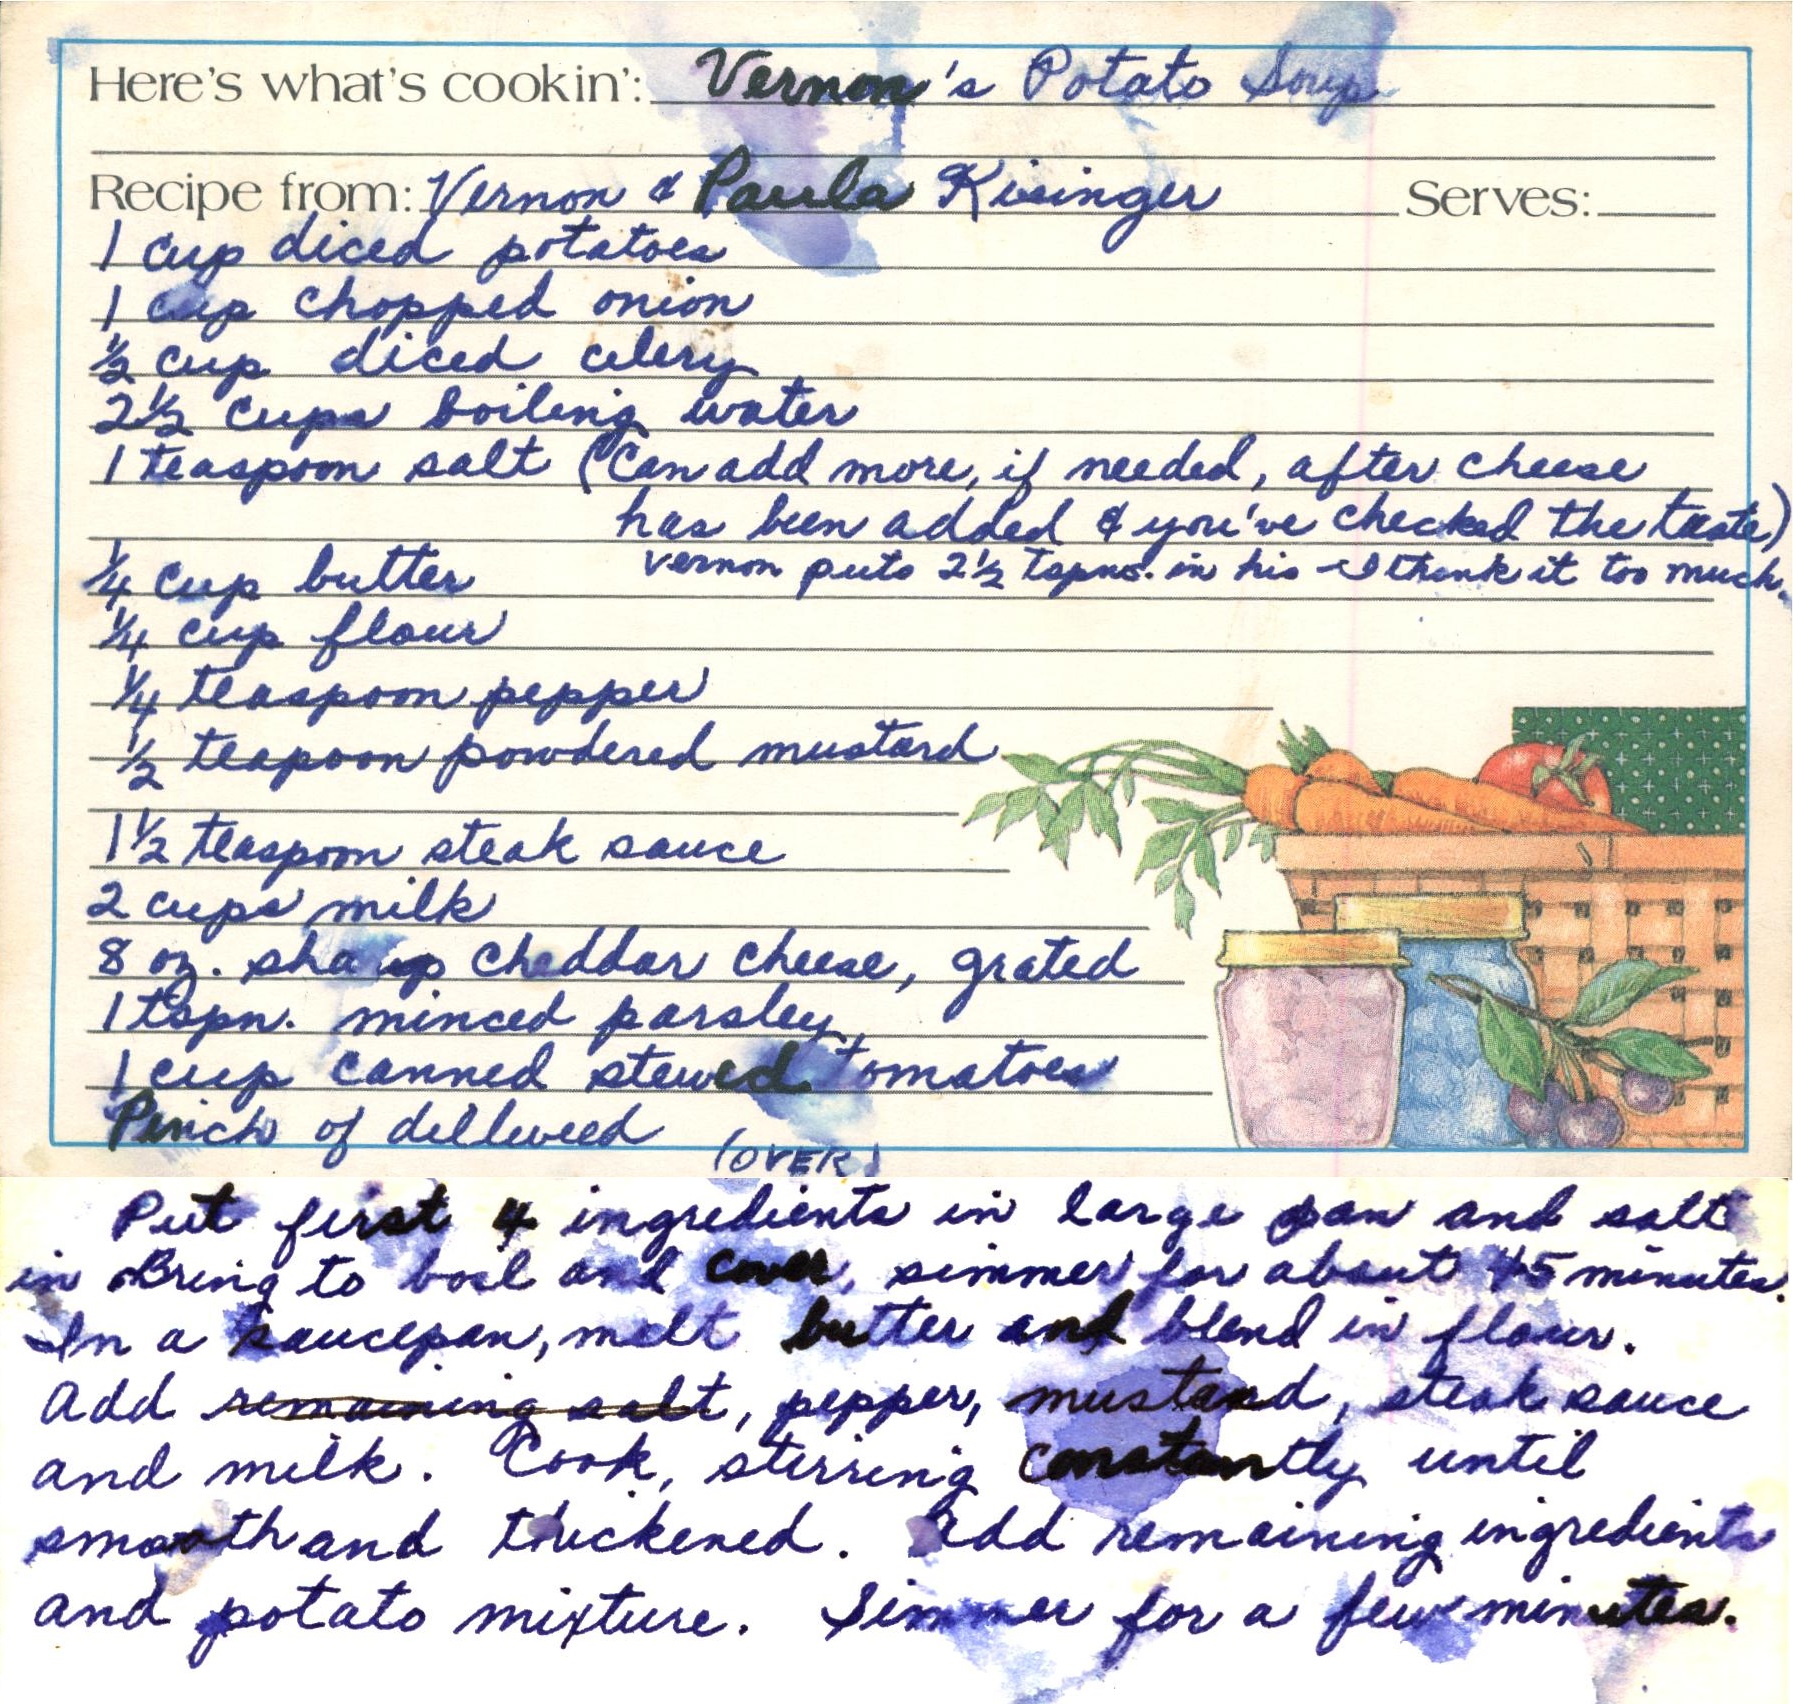 Here's what's cookin': Vernon's Potato Soup
Recipe from: Vernon & Paula Kisinger Serves:
1 cup diced potatoes
1 cup chopped onion
1/2 cup diced celery
2 1/2 cups boiling water
1 teaspoon salt (Can add more, if needed, after cheese
has been added & you've checked the taste)
Vernon puts 2 1/2 tspns. in his - I think it too much.
1/4 cup butter
1/4 cup flour
1/4 teaspoon pepper
1/2 teapoon powdered mustard
1 1/2 teaspoon steak sauce
2 cups milk
8 oz. sharp cheddar cheese, grated
1 tspn. minced parsley
1 cup canned stewed tomatoes
Pinch of dillweed
(OVER)
Put first 4 ingredients in large pan and salt
in Bring to boil and cover, simmer for about 45 minutes.
In a saucepan, melt butter and blend in flour.
Add remaining salt, pepper, mustard, steak sauce
and milk. Cook, stirring constantly until
smooth and thickened. Add remaining ingredients
and potato mixture. Simmer for a few minutes.